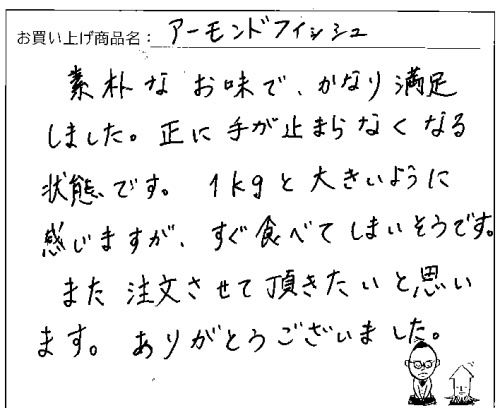 お買い上げ商品名：アーモンドフィッシュ
素朴なお味で、かなり満足
しました。正に手が止まらなくなる
状態です。1kgと大きいように
感じますが、すぐ食べてしまいそうです。
また注文させて頂きたいと思い
ます。ありがとうございました。